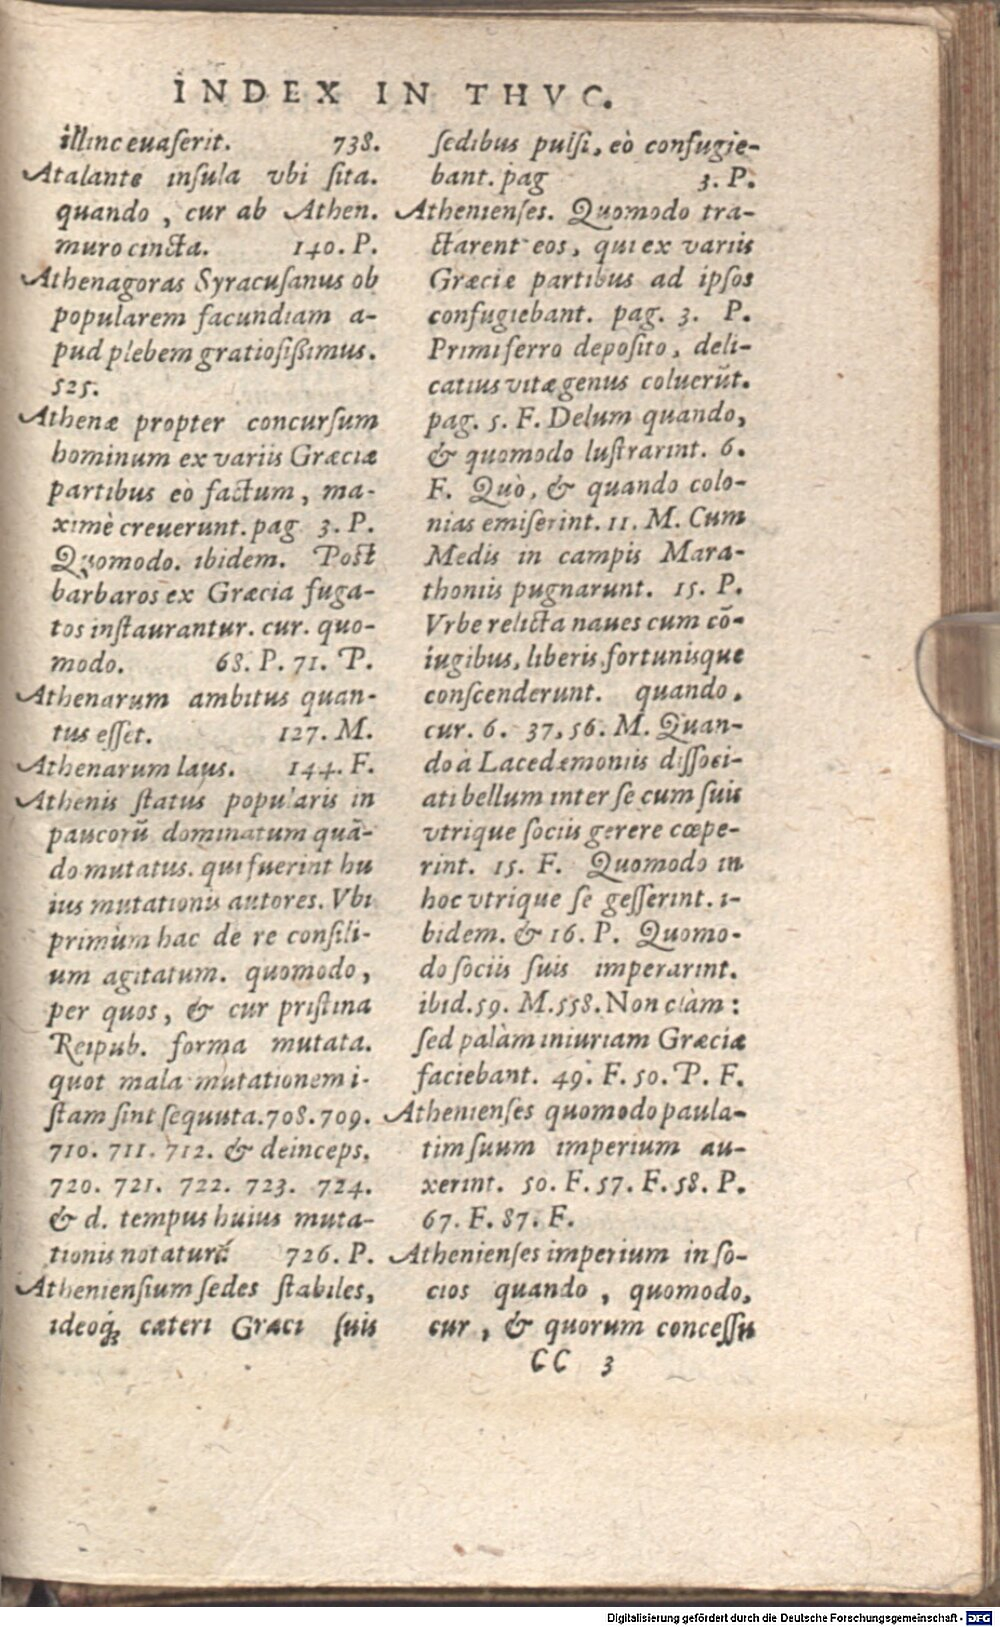 INDEX IN THVC.
illinc euaſerit. 738.
Atalante inſula vbi ſita.
quando, cur ab Athen.
muro cincta. 140. P.
Athenagoras Syracuſanus ob
popularem facundiam a-
pud plebem gratioſißimus.
525.
Athenæ propter concurſum
hominum ex variis Græciæ
partibus eò factum, ma-
ximè creuerunt. pag 3. P.
Quomodo. ibidem. Post
barbaros ex Græcia fuga-
tos inſtaurantur. cur. quo-
modo. 68. P. 71. P.
Athenarum ambitus quan-
tus eſſet. 127. M.
Athenarum laus. 144. F.
Athenis ſtatus popularis in
paucorū dominatum quā-
do mutatus. qui fuerint hu
ius mutationis autores. Vbi
primùm hac de re conſili-
um agitatum. quomodo,
per quos, & cur priſtina
Reipub. forma mutata.
quot mala mutationem i-
ſtam ſint ſequuta. 708. 709.
710. 711. 712. & deinceps.
720. 721. 722. 723. 724.
& d. tempus huius muta-
tionis notatur. 726. P.
Athenienſium ſedes ſtabiles,
ideoq́; cæteri Græci ſuis
ſedibus pulſi, eò confugie-
bant. pag 3. P.
Athenienſes. Quomodo tra-
ctarent eos, qui ex variis
Græciæ partibus ad ipſos
confugiebant. pag. 3. P.
Primi ferro depoſito, deli-
catius vitæ genus coluerūt.
pag. 5. F. Delum quando,
& quomodo luſtrarint. 6.
F. Quò, & quando colo-
nias emiſerint. 11. M. Cum
Medis in campis Mara-
thoniis pugnarunt. 15. P.
Vrbe relicta naues cum cō-
iugibus, liberis, fortunisque
conſcenderunt. quando.
cur. 6. 37, 56. M. Quan-
do à Lacedæmoniis diſſoci-
ati bellum inter ſe cum ſuis
vtrique ſociis gerere cœpe-
rint. 15. F. Quomodo in
hoc vtrique ſe geſſerint. i-
bidem. & 16. P. Quomo-
do ſociis ſuis imperarint.
ibid. 59. M. 558. Non clàm:
ſed palàm iniuriam Græciæ
faciebant. 49. F. 50. P. F.
Athenienſes quomodo paula-
tim ſuum imperium au-
xerint. 50. F. 57. F. 58. P.
67. F. 87. F.
Athenienſes imperium in ſo-
cios quando, quomodo,
cur, & quorum conceſſu
CC 3
Digitalisierung gefördert durch die Deutsche Forschungsgemeinschaft - DFG